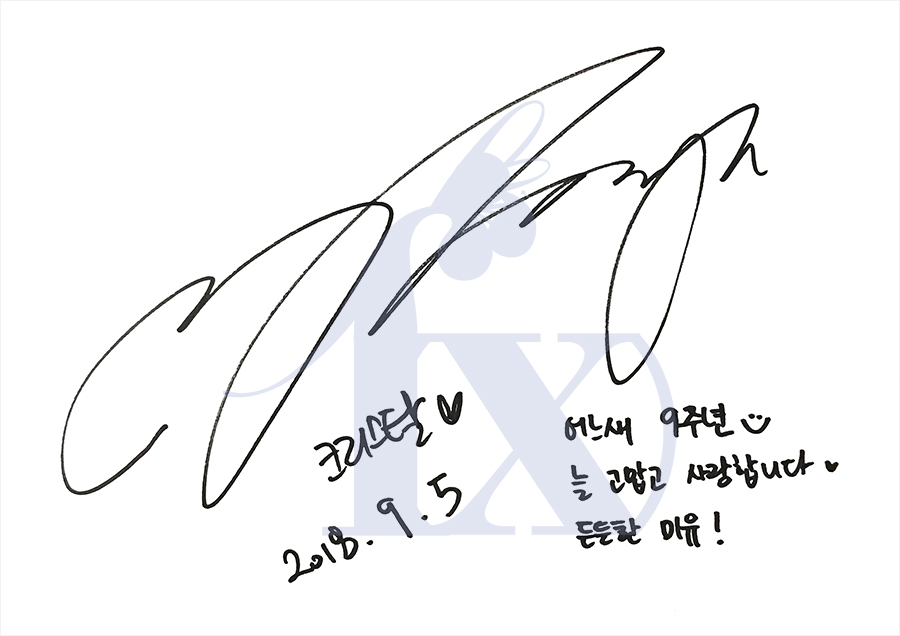 fx
크리스탈♥
2018. 9. 5
어느새 9주년
늘 고맙고 사랑합니다♥
든든한 미유!